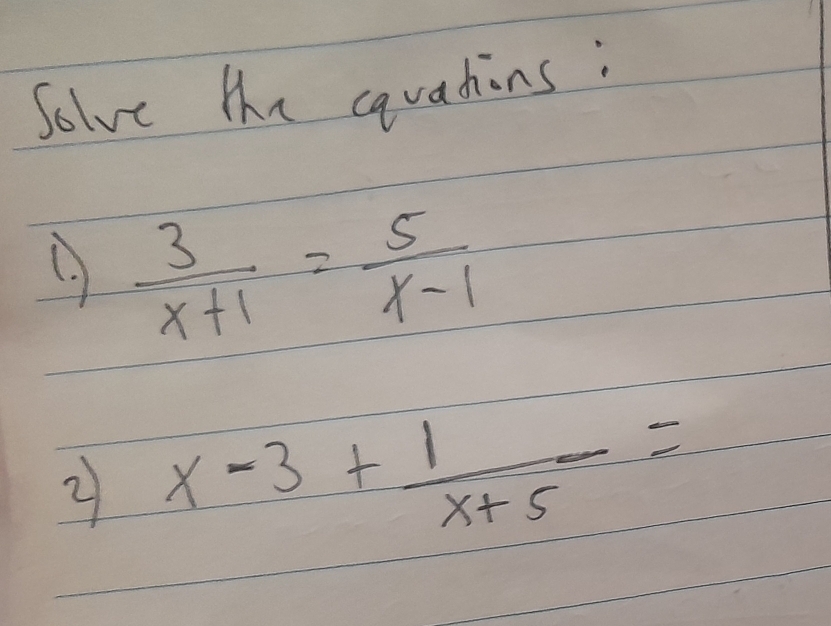 Solve the equations:
1.) 3/(x+1) = 5/(x-1)
2) x-3 + 1/(x+5) =